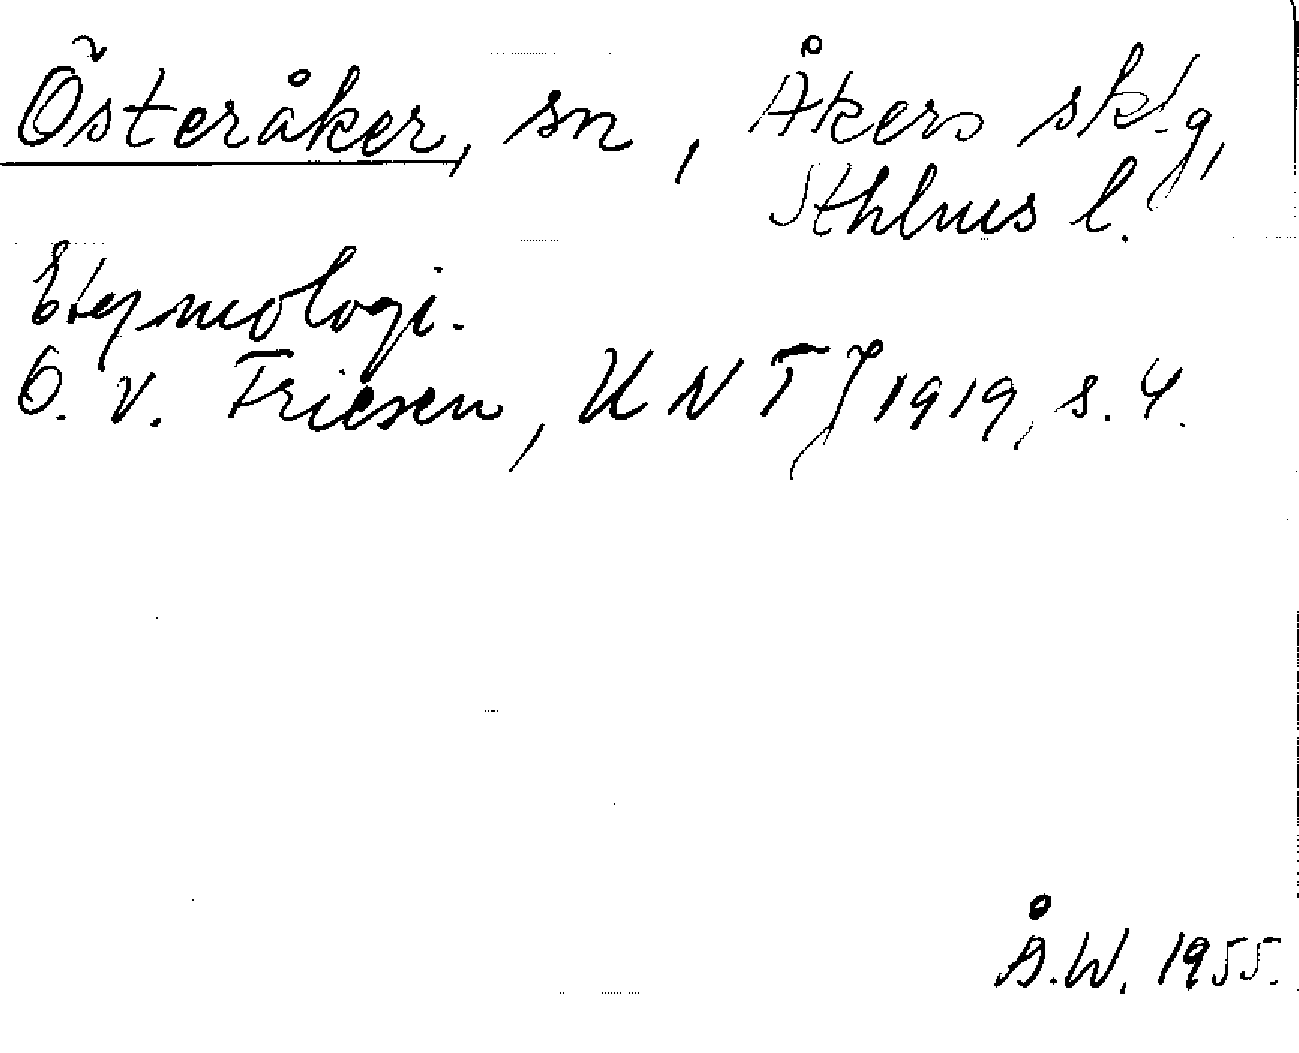 Österåker, sn, Åkers sk!g,
Sthlms l.
Etymologi.
O. v. Friesen, UNTJ 1919, s. 4.
Å.W. 1955.